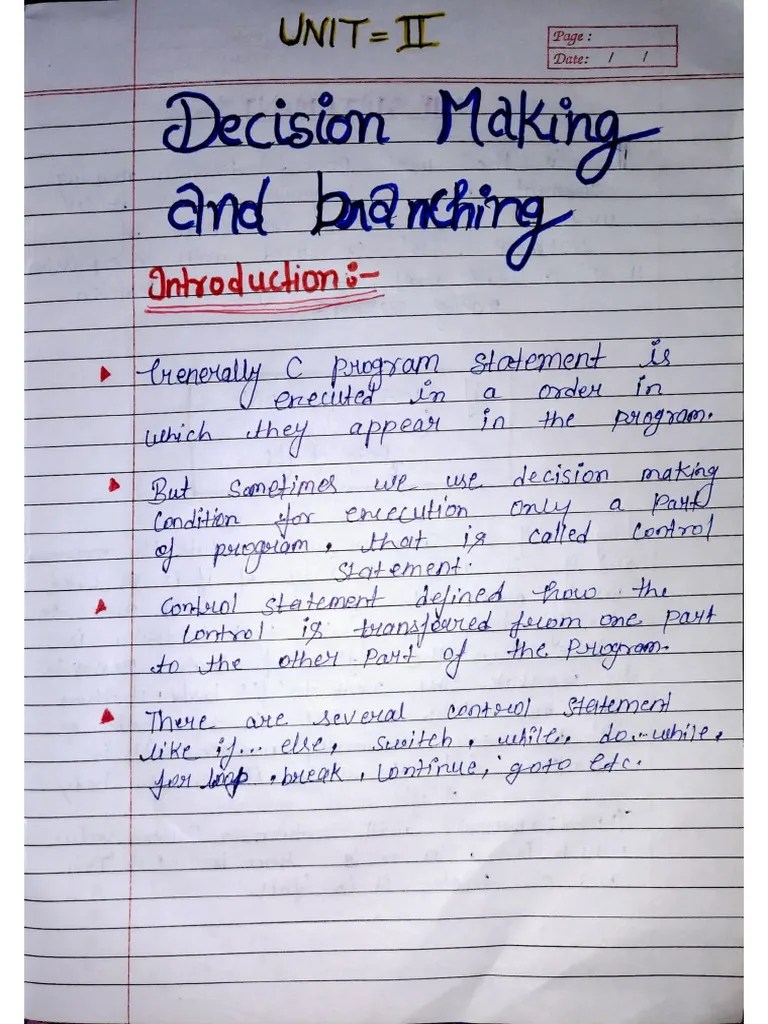 UNIT = II
Page :
Date: / /
Decision Making
and branching
Introduction :-
Generally C program statement is
executed in a order in
which they appear in the program.
But sometimes we use decision making
condition for execution only a part
of program, that is called control
statement.
Control statement defined how the
control is transfered from one part
to the other part of the program.
There are several control statement
like if... else, switch, while, do..while,
for loop, break, continue, goto etc.